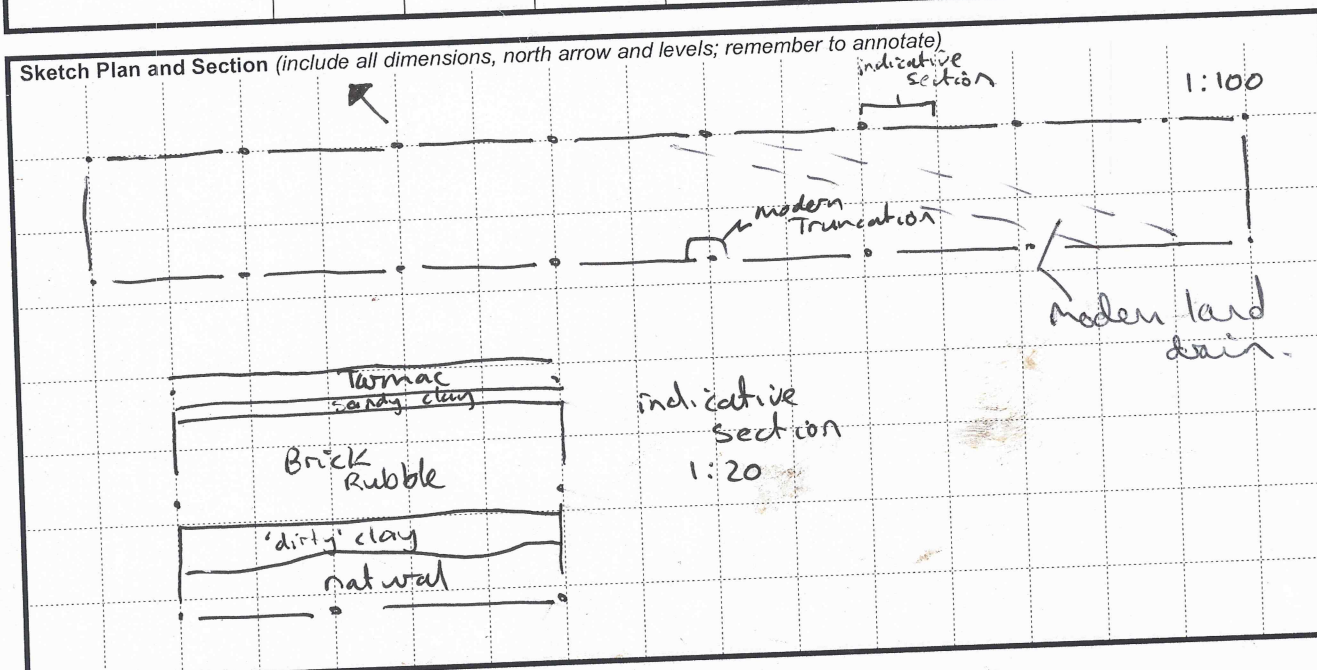 Sketch Plan and Section (include all dimensions, north arrow and levels; remember to annotate)
indicative
section
1:100
modern
Truncation
Modern land
drain.
Tarmac
sandy clay
Brick
Rubble
'dirty' clay
natural
indicative
section
1:20